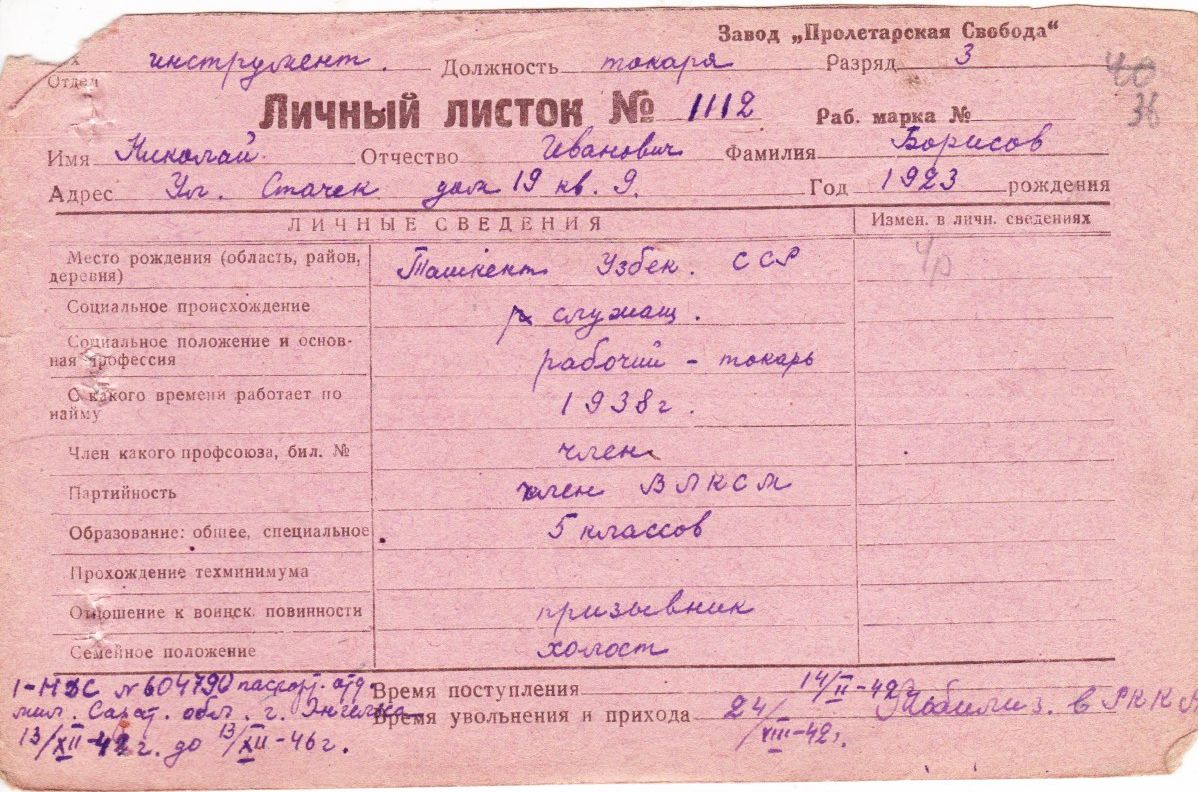 Завод „Пролетарская Свобода“
Отдел инструмент. Должность токаря Разряд 3
40
36
Личный листок № 1112 Раб. марка №
Имя Николай Отчество Иванович Фамилия Борисов
Адрес Ул. Стачек дом 19 кв. 9. Год 1923 рождения
ЛИЧНЫЕ СВЕДЕНИЯ Измен. в личн. сведениях
Место рождения (область, район, деревня) Ташкент Узбек. ССР
Социальное происхождение служащ.
Социальное положение и основная профессия рабочий - токарь
С какого времени работает по найму 1938г.
Член какого профсоюза, бил. № член
Партийность член ВЛКСМ
Образование: общее, специальное 5 классов
Прохождение техминимума
Отношение к воинск. повинности призывник
Семейное положение холост
Время поступления 14/II-42г.
Время увольнения и прихода 24/ -42г. в РККА
№ 604790 паспорт. отд.
мил. Сарат. обл. г. Энгельса
13/XII-42г. до 13/XII-46г.